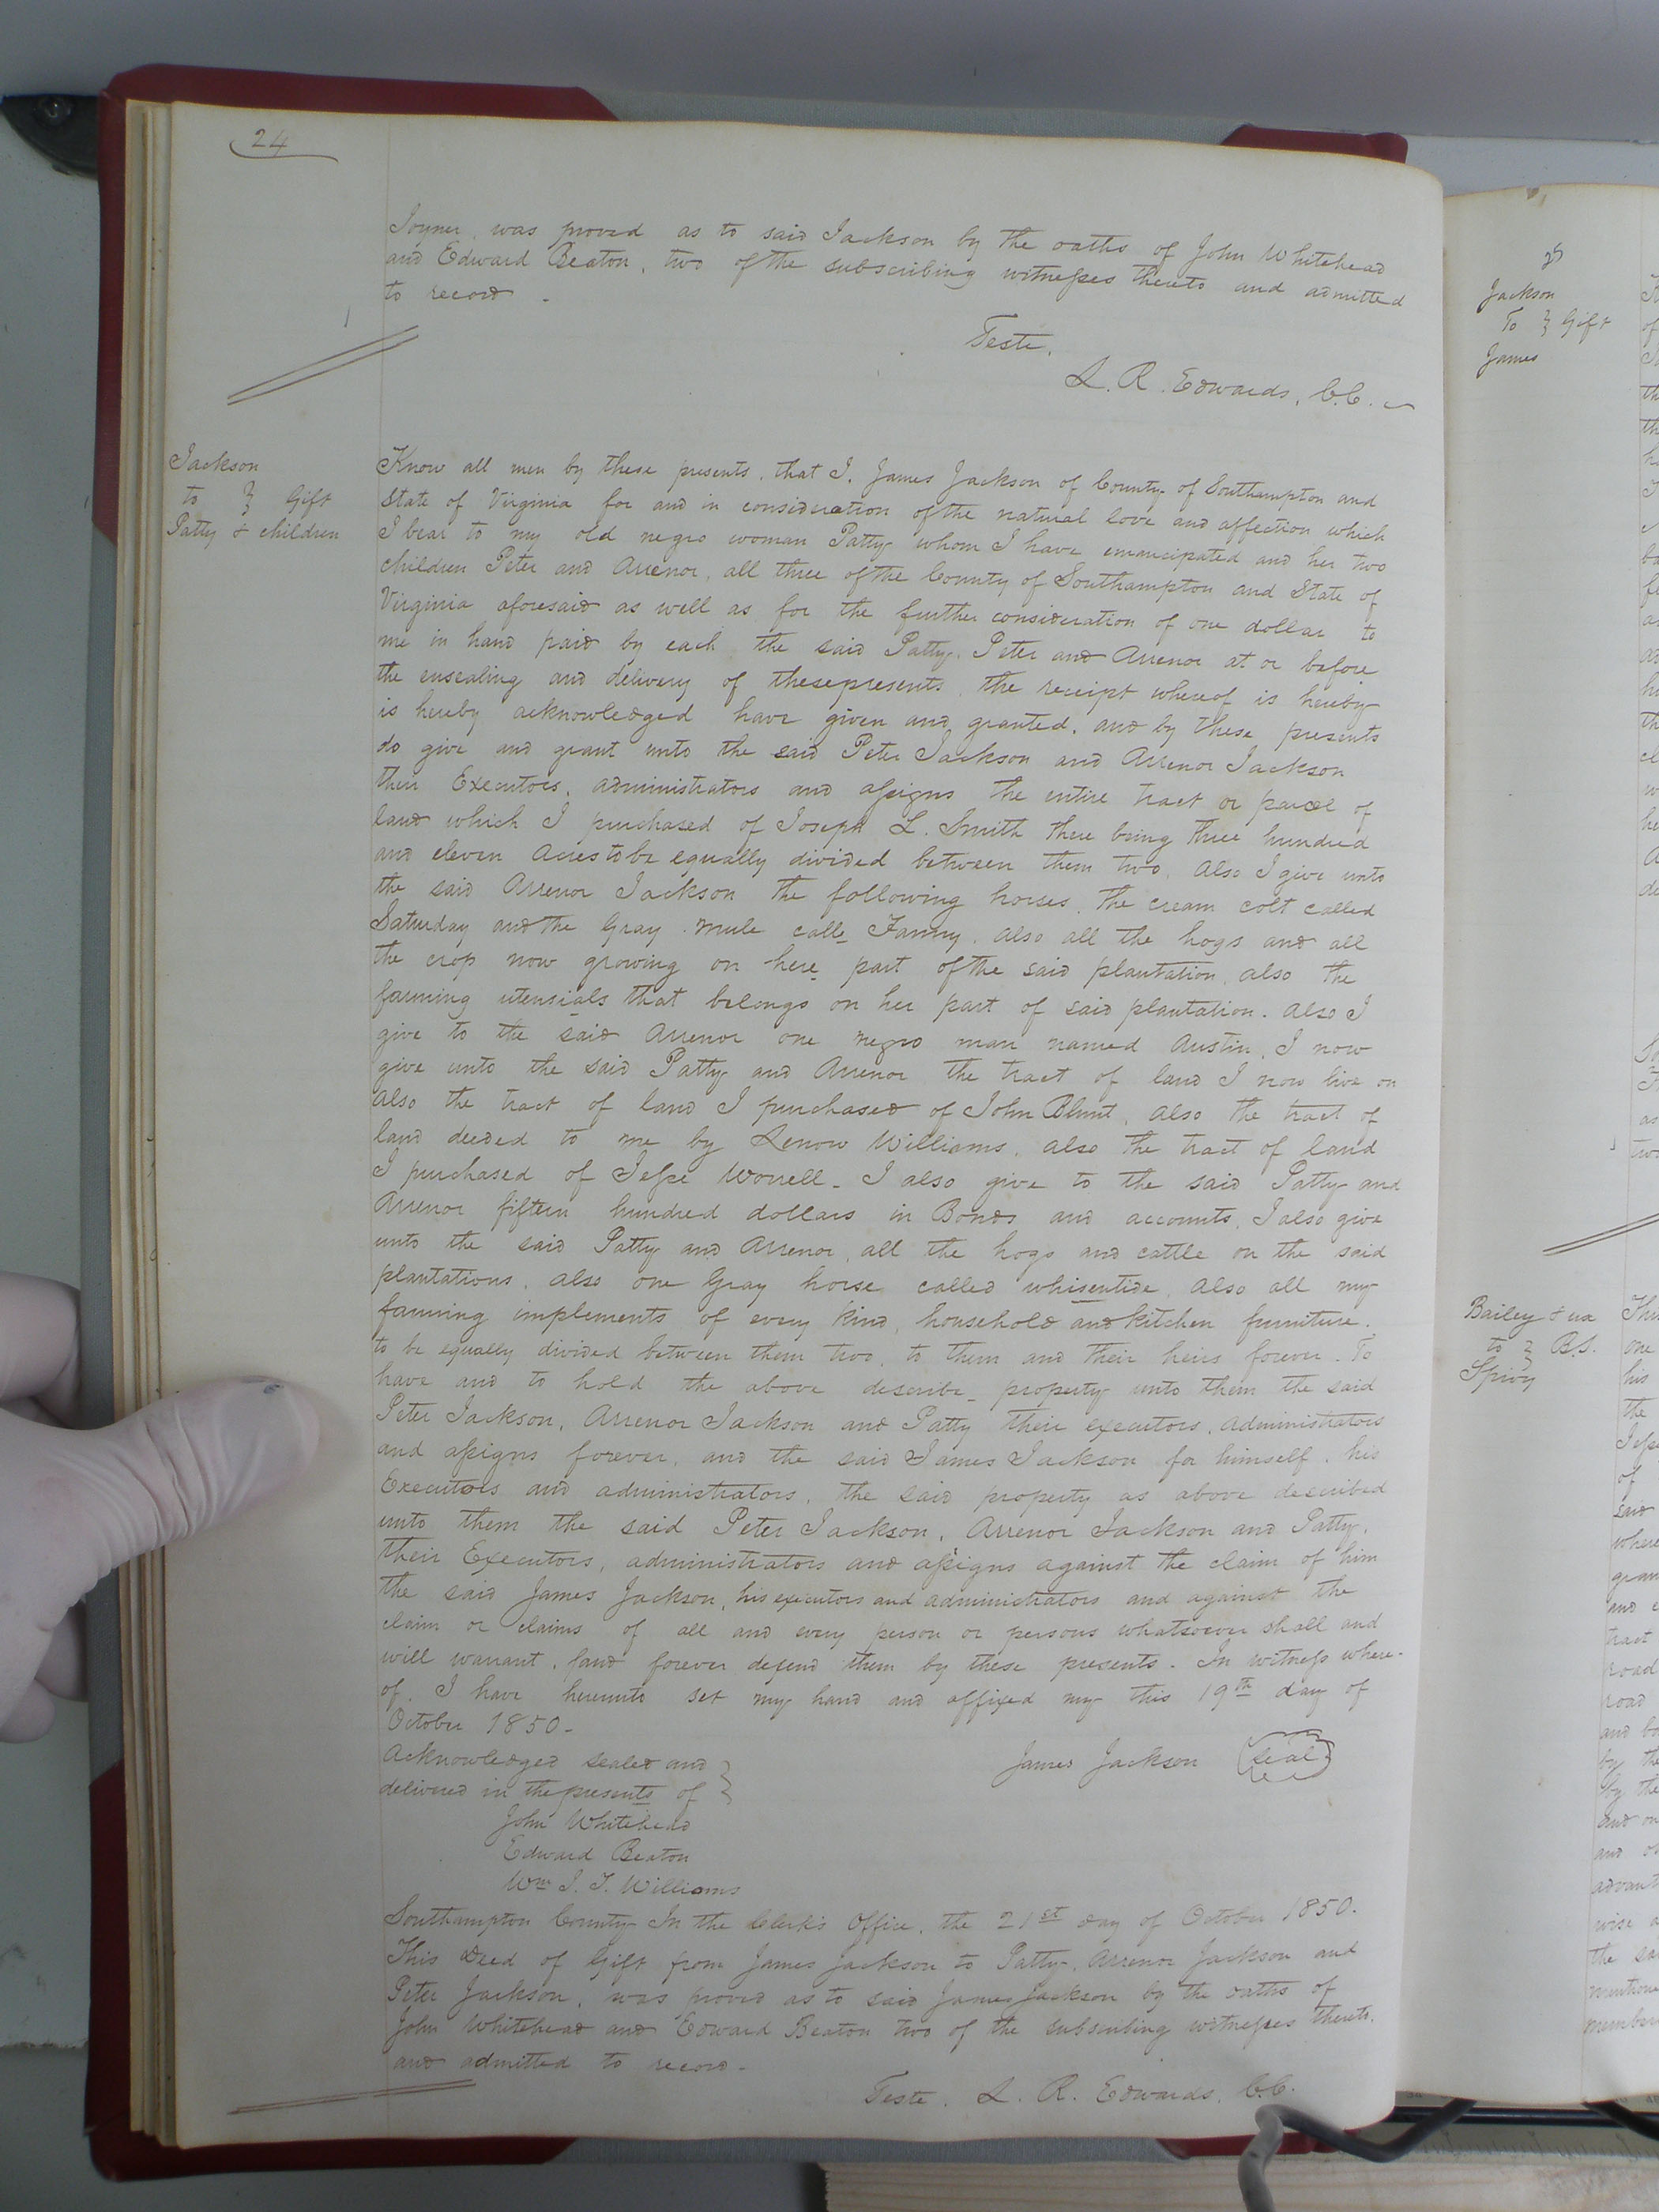 24
Joyner, was proved as to said Jackson by the oaths of John Whitehead
and Edward Beaton, two of the subscribing witnesses thereto and admitted
to record.
Teste,
L. R. Edwards, C.C.
Jackson
to } Gift
Patty & children
Know all men by these presents, that I, James Jackson of County of Southampton and
State of Virginia for and in consideration of the natural love and affection which
I bear to my old negro woman Patty whom I have emancipated and her two
children Peter and Arrenor, all three of the County of Southampton and State of
Virginia aforesaid as well as for the further consideration of one dollar to
me in hand paid by each the said Patty, Peter and Arrenor at or before
the ensealing and delivery of these presents, the receipt whereof is hereby
is hereby acknowledged have given and granted, and by these presents
do give and grant unto the said Peter Jackson and Arrenor Jackson
their Executors, administrators and assigns the entire tract or parcel of
land which I purchased of Joseph L. Smith there being three hundred
and eleven Acres to be equally divided between them two, Also I give unto
the said Arrenor Jackson the following horses, the cream colt called
Saturday and the Gray mule calle Fanny, also all the hogs and all
the crop now growing on here part of the said plantation, also the
farming utensials that belongs on her part of said plantation. Also I
give to the said Arrenor one negro man named Austin, I now
give unto the said Patty and Arrenor the tract of land I now live on
also the tract of land I purchased of John Blunt, also the tract of
land deeded to me by Lenow Williams, also the tract of land
I purchased of Jesse Worrell - I also give to the said Patty and
Arrenor fifteen hundred dollars in Bonds and accounts, I also give
unto the said Patty and Arrenor, all the hogs and cattle on the said
plantations, also one Gray horse called whisentide, Also all my
farming implements of every kind, household and kitchen furniture.
to be equally divided between them two, to them and their heirs forever. To
have and to hold the above describe property unto them the said
Peter Jackson, Arrenor Jackson and Patty their executors, administrators
and assigns forever, and the said James Jackson for himself, his
Executors and administrators, the said property as above described
unto them the said Peter Jackson, Arrenor Jackson and Patty,
their Executors, administrators and assigns against the claim of him
the said James Jackson, his executors and administrators and against the
claim or claims of all and every person or persons whatsoever shall and
will warrant, and forever defend them by these presents. In witness where-
of, I have hereunto set my hand and affixed my this 19th day of
October 1850 -
Acknowledged sealed and }
delivered in the presents of }
James Jackson (seal)
John Whitehead
Edward Beaton
Wm J. T. Williams
Southampton County In the Clerk's Office, the 21st day of October 1850.
This Deed of Gift from James Jackson to Patty, Arrenor Jackson and
Peter Jackson, was proved as to said James Jackson by the oaths of
John Whitehead and Edward Beaton two of the subscribing witnesses thereto,
and admitted to record -
Teste, L. R. Edwards, C.C.
25
Jackson
To } Gift
James
Bailey & ux
to } B.S.
Spivy